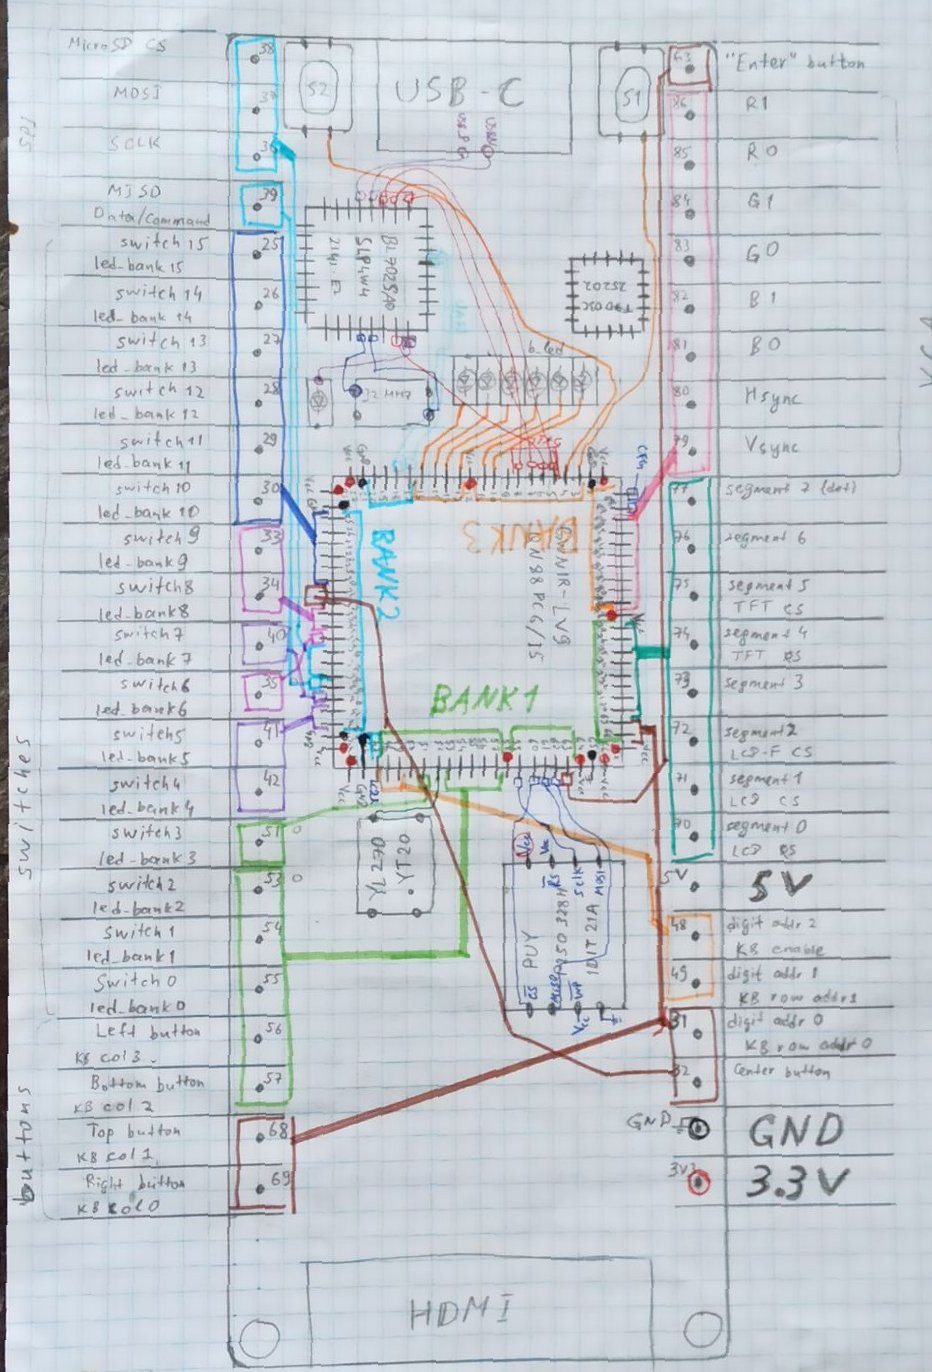 MicroSD CS
MOSI
SCLK
MISO
Data/Command
switch 15
led_bank 15
switch 14
led_bank 14
switch 13
led_bank 13
switch 12
led_bank 12
switch 11
led_bank 11
switch 10
led_bank 10
switch 9
led_bank 9
switch 8
led_bank 8
switch 7
led_bank 7
switch 6
led_bank 6
switch 5
led_bank 5
switch 4
led_bank 4
switch 3
led_bank 3
switch 2
led_bank 2
Switch 1
led_bank 1
Switch 0
led_bank 0
Left button
KB col 3
Bottom button
KB col 2
Top button
KB col 1
Right button
KB col 0
switches
buttons
38
37
36
39
25
26
27
28
29
30
33
34
40
35
41
42
51
53
54
55
56
57
68
69
S2
USB-C
S1
b_led
BANK2
BANK3
BANK1
YT20
PUY
1D1T 21A
HDMI
63
86
85
84
83
82
81
80
79
77
76
75
74
73
72
71
70
5V
48
49
31
32
GND
3V3
"Enter" button
R1
R0
G1
G0
B1
B0
Hsync
Vsync
VGA
segment 7 (dot)
segment 6
segment 5
TFT CS
segment 4
TFT RS
segment 3
segment 2
LCD-F CS
segment 1
LCD CS
segment 0
LCD RS
5V
digit addr 2
KB enable
digit addr 1
KB row addr 1
digit addr 0
KB row addr 0
Center button
GND
3.3V